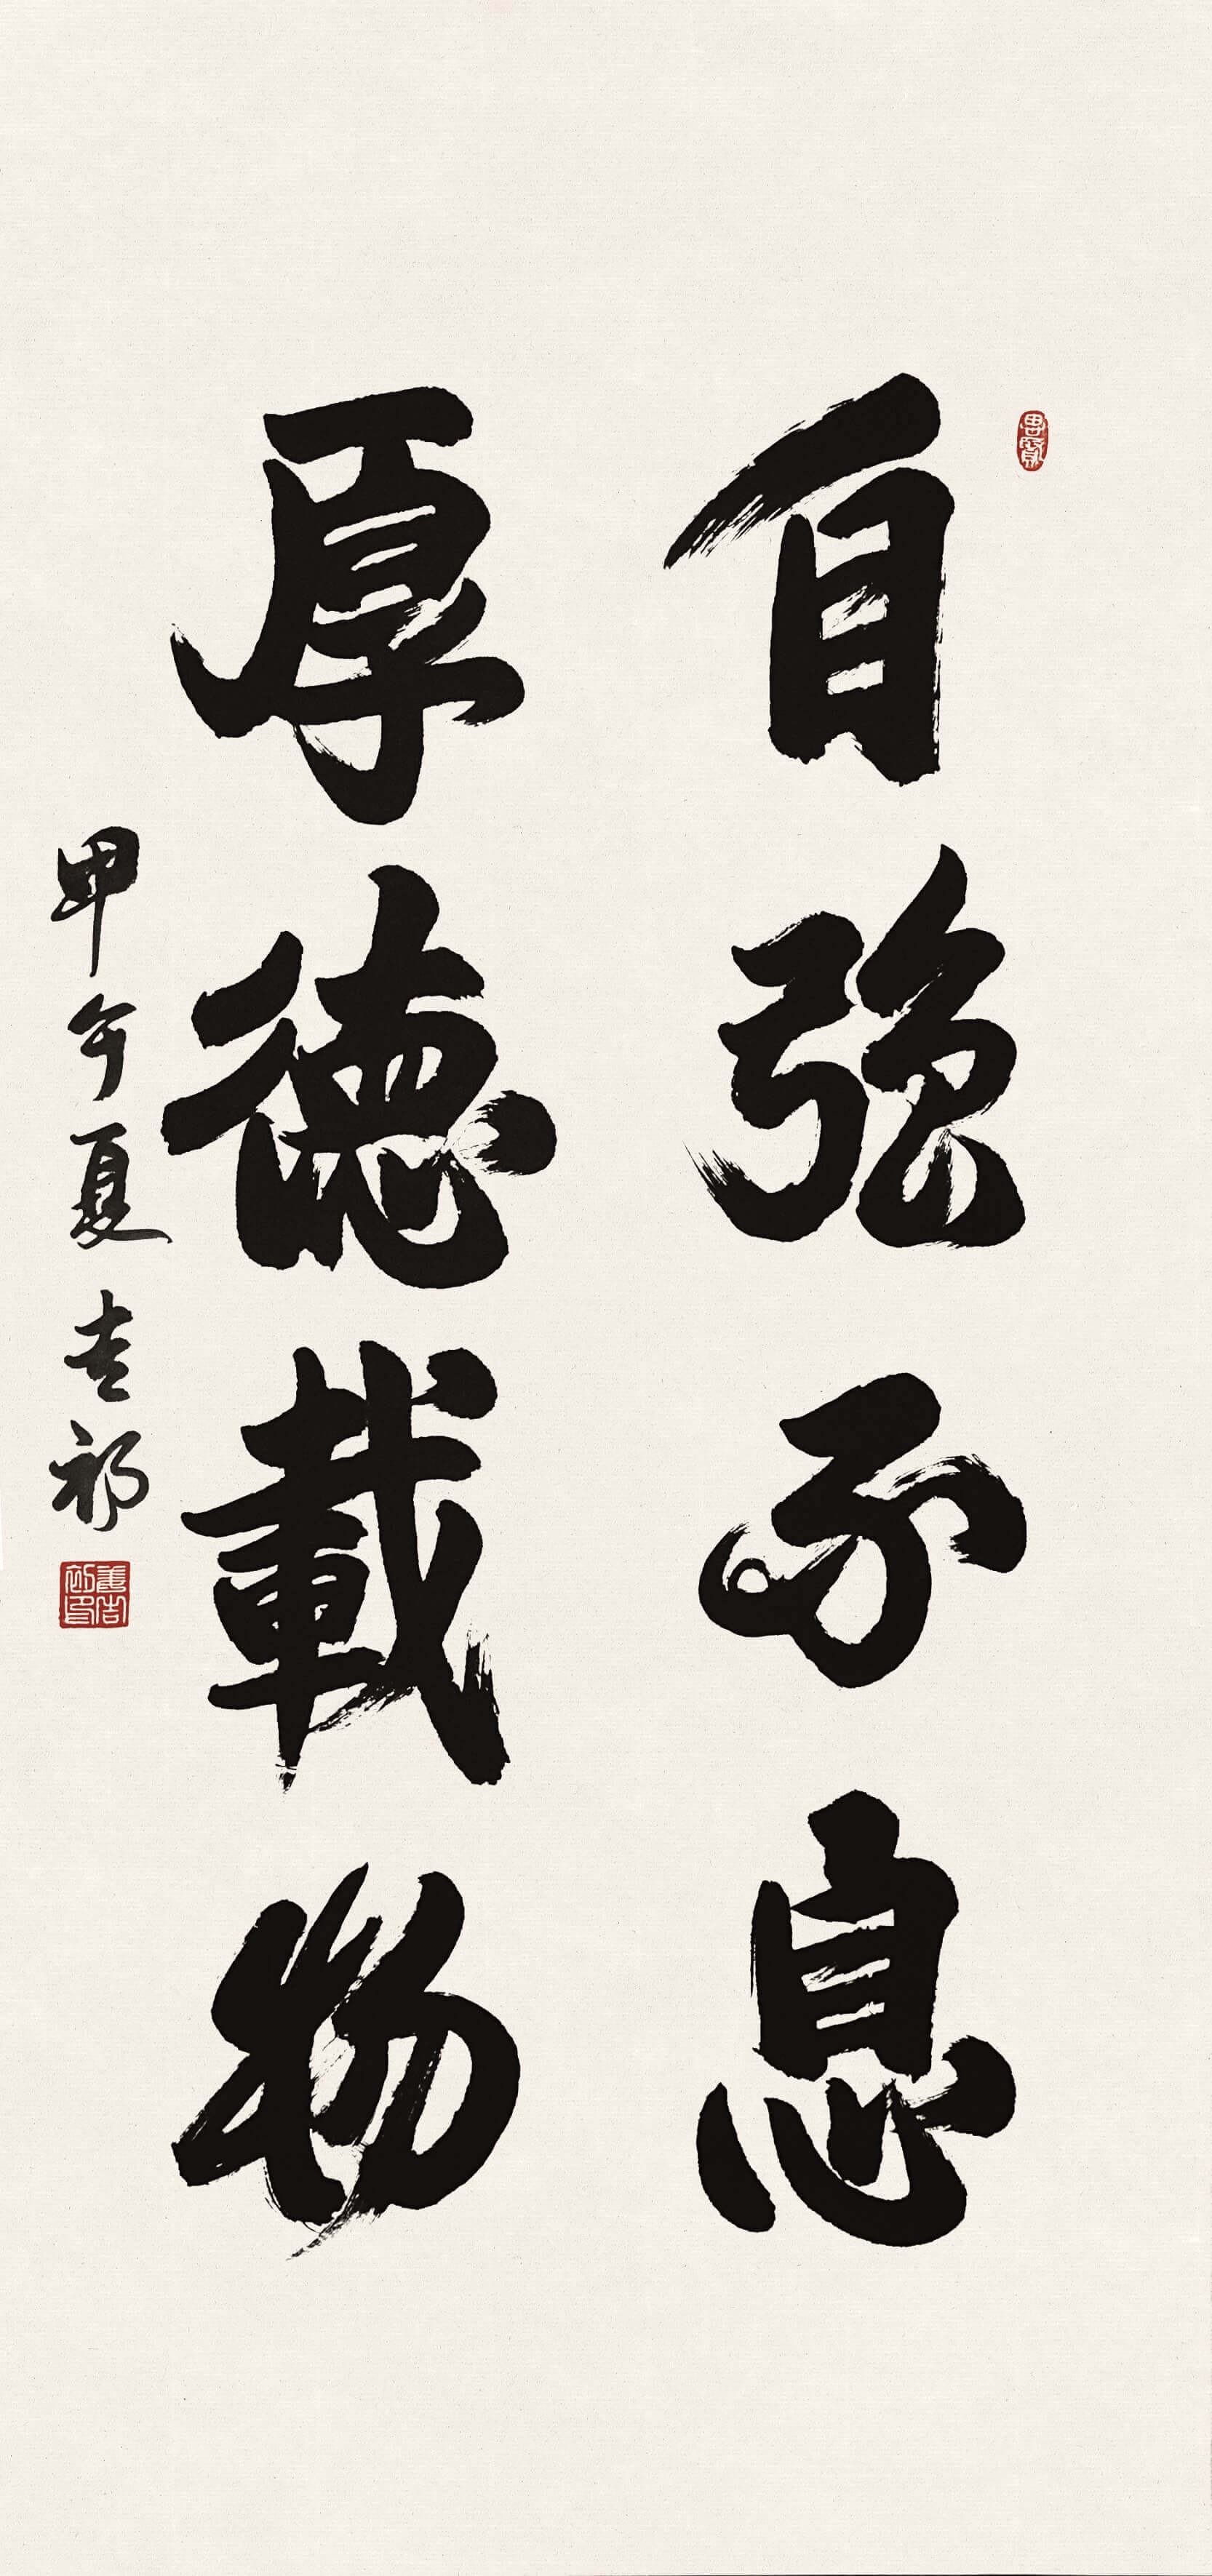 自強不息
厚德載物
甲午夏吉初